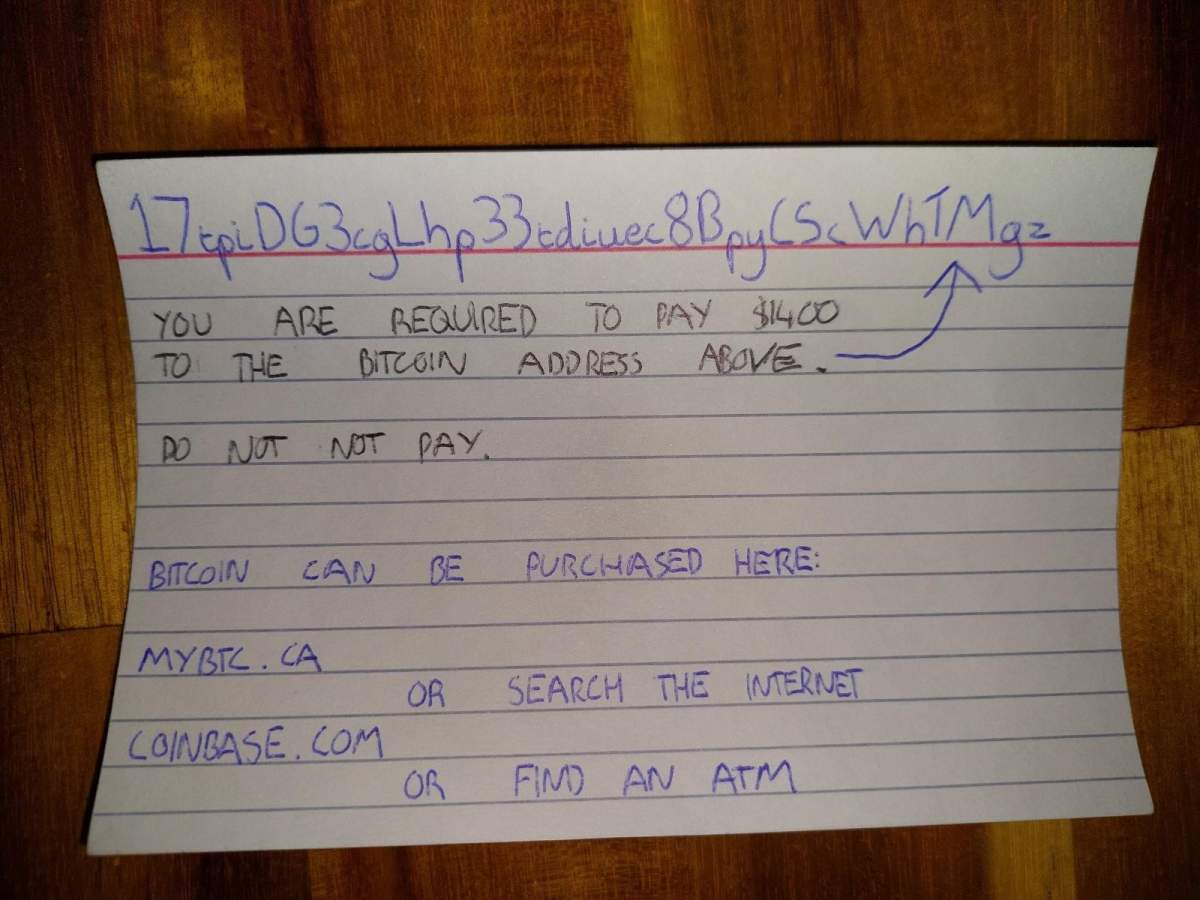 17tpiDG3cgLhp33tdiuec8BpyCScWhTMgz
YOU ARE REQUIRED TO PAY $1400
TO THE BITCOIN ADDRESS ABOVE.
DO NOT NOT PAY.
BITCOIN CAN BE PURCHASED HERE:
MYBTC.CA
OR SEARCH THE INTERNET
COINBASE.COM
OR FIND AN ATM